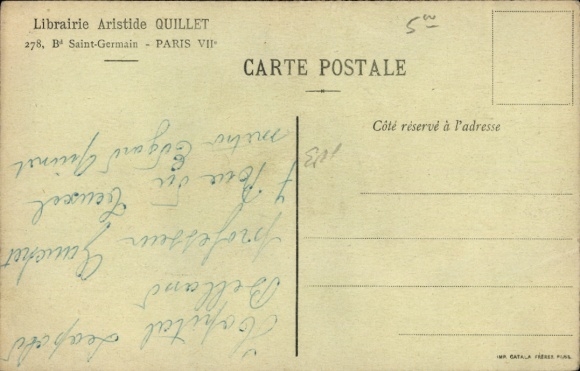 Librairie Aristide QUILLET
278, Bd Saint-Germain - PARIS VIIe
CARTE POSTALE
Côté réservé à l'adresse
Hopital Leopold
Belland
professeur Gauchet
7 Rue du Texel
métro Edgard Quinet
IMP. CATALA FRÈRES, PARIS.